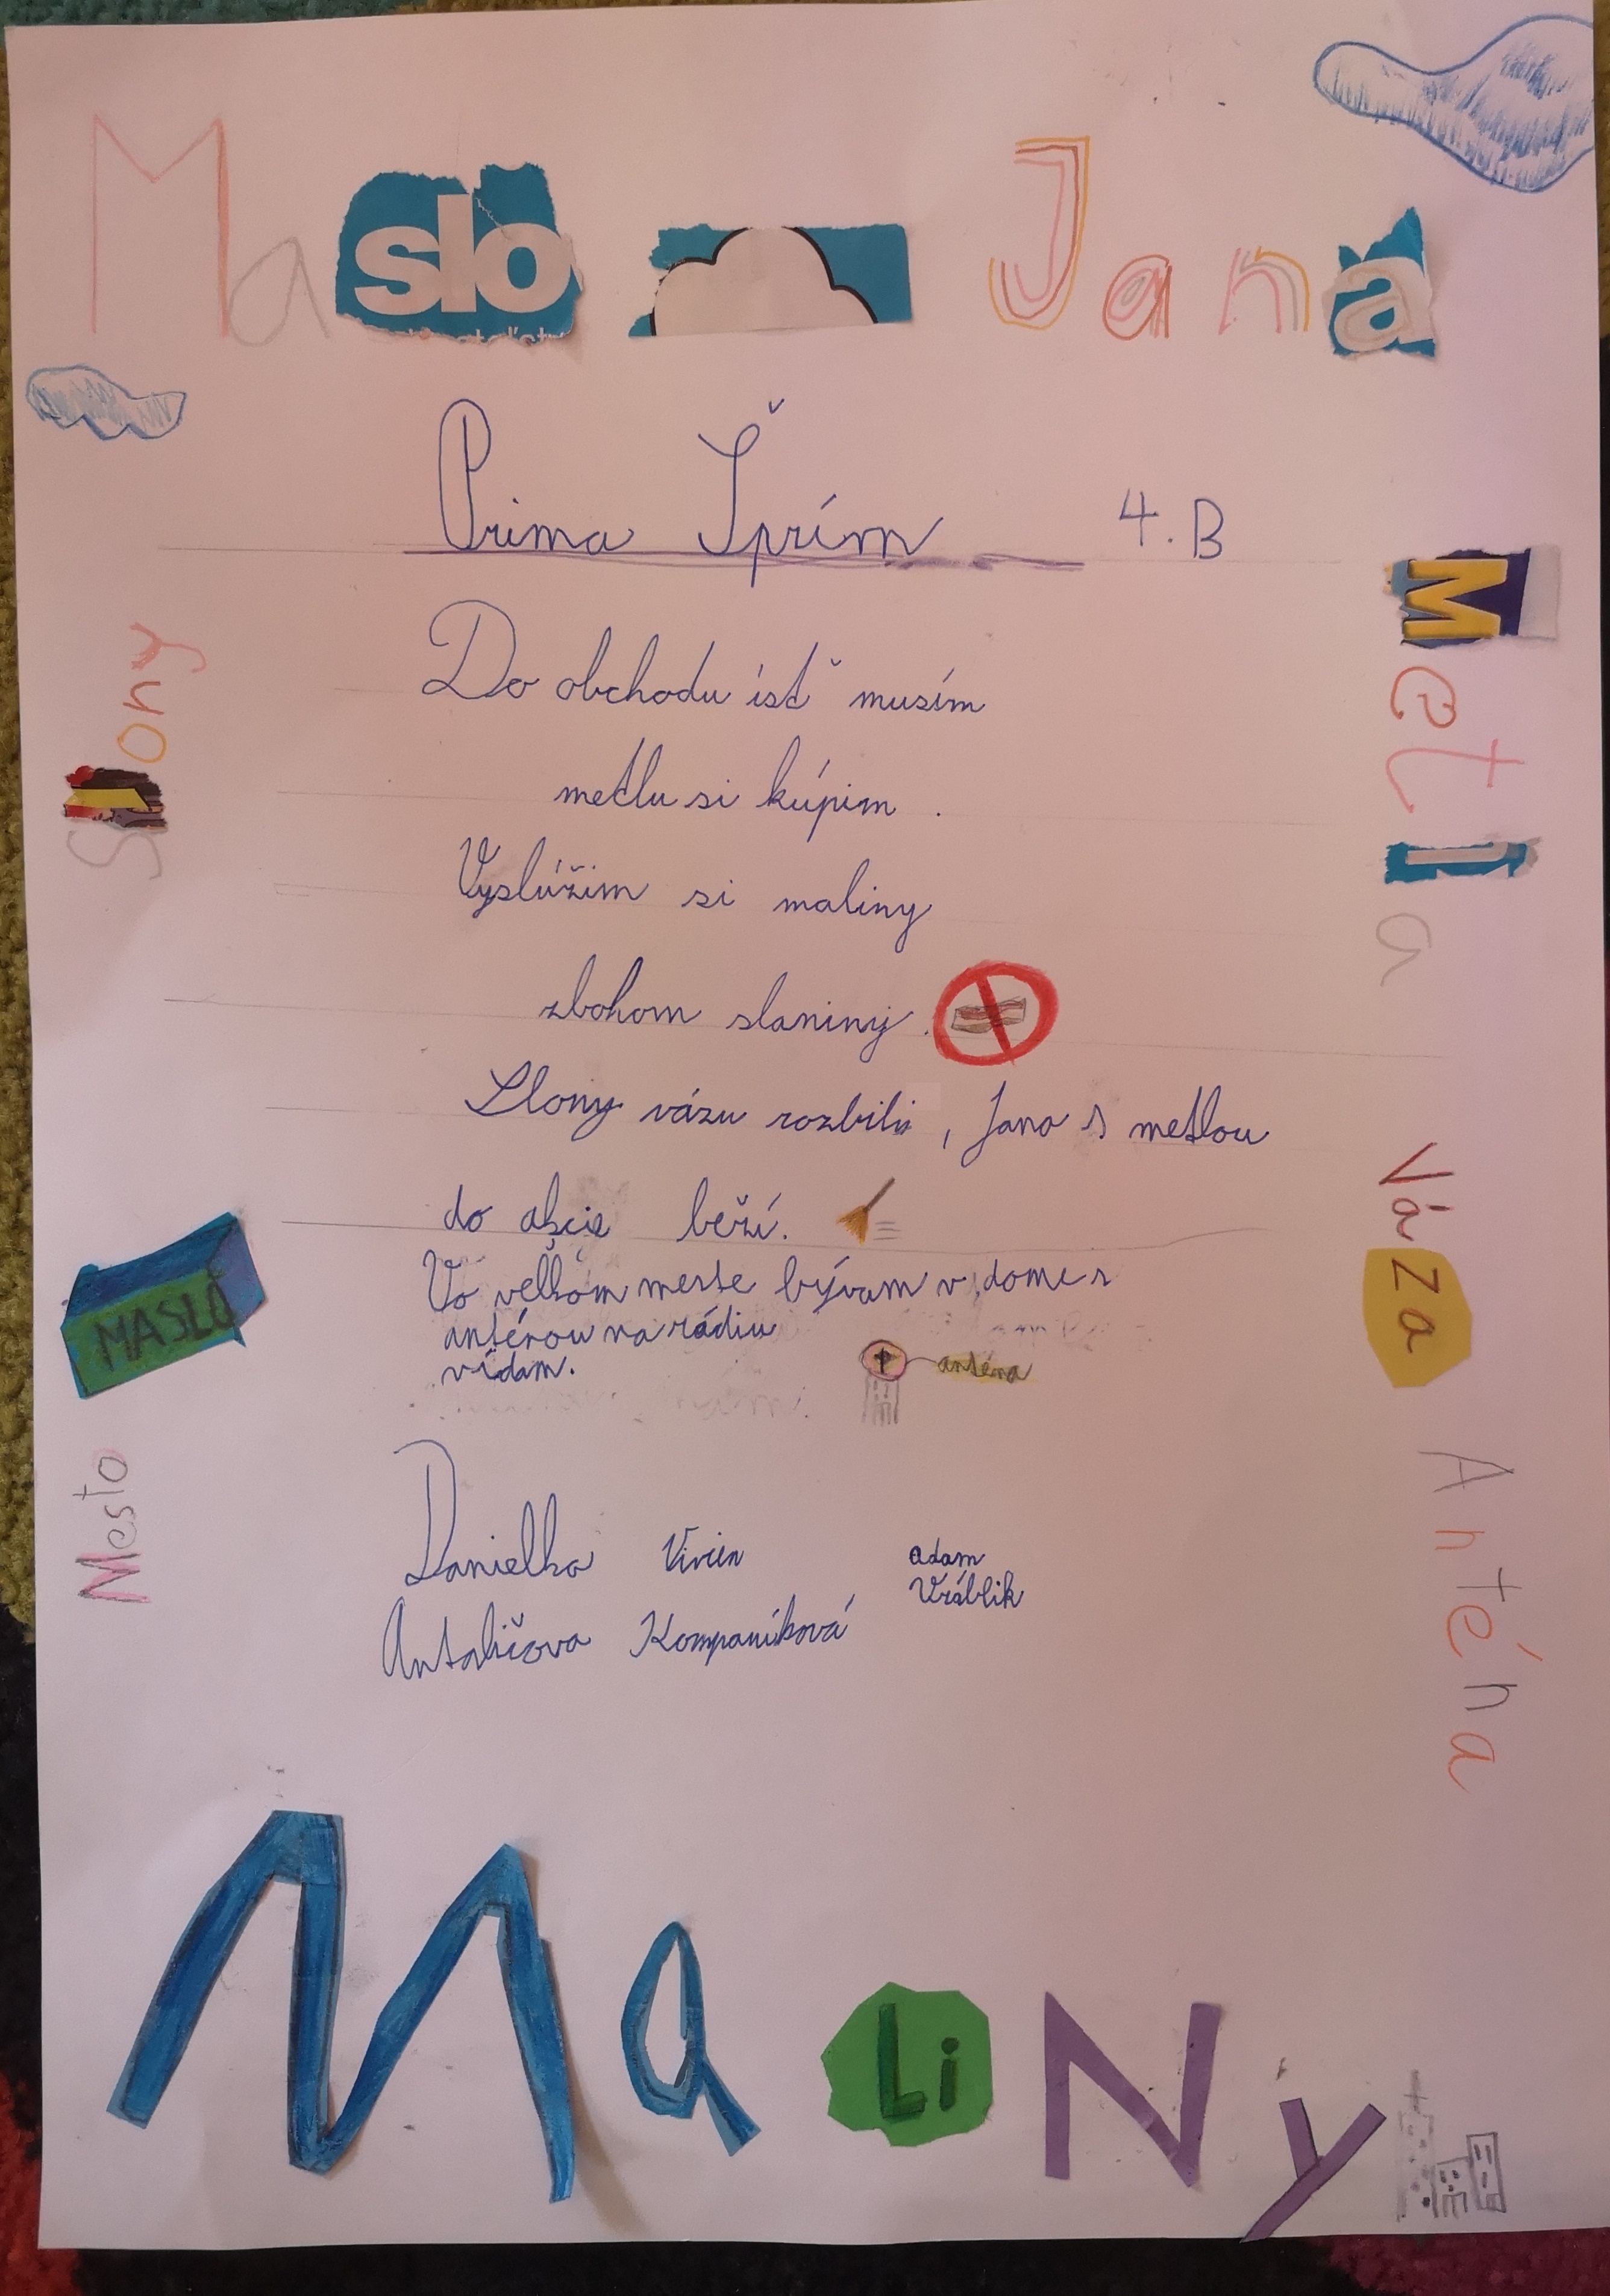 Maslo Jana
Prima Šprím 4.B
Do obchodu ísť musím
metlu si kúpim.
Vyslúžim si maliny
zbohom slaniny.
Slony vázu rozbili, Jana s metlou
do akcie beží.
Vo veľkom meste bývam v dome s
anténou na rádiu
vídam.
anténa
Danielka Vivien Adam
Vráblik
Antaličova Kompaníková
Slony
MASLO
Mesto
Metla
Váza
Anténa
MaLiNy